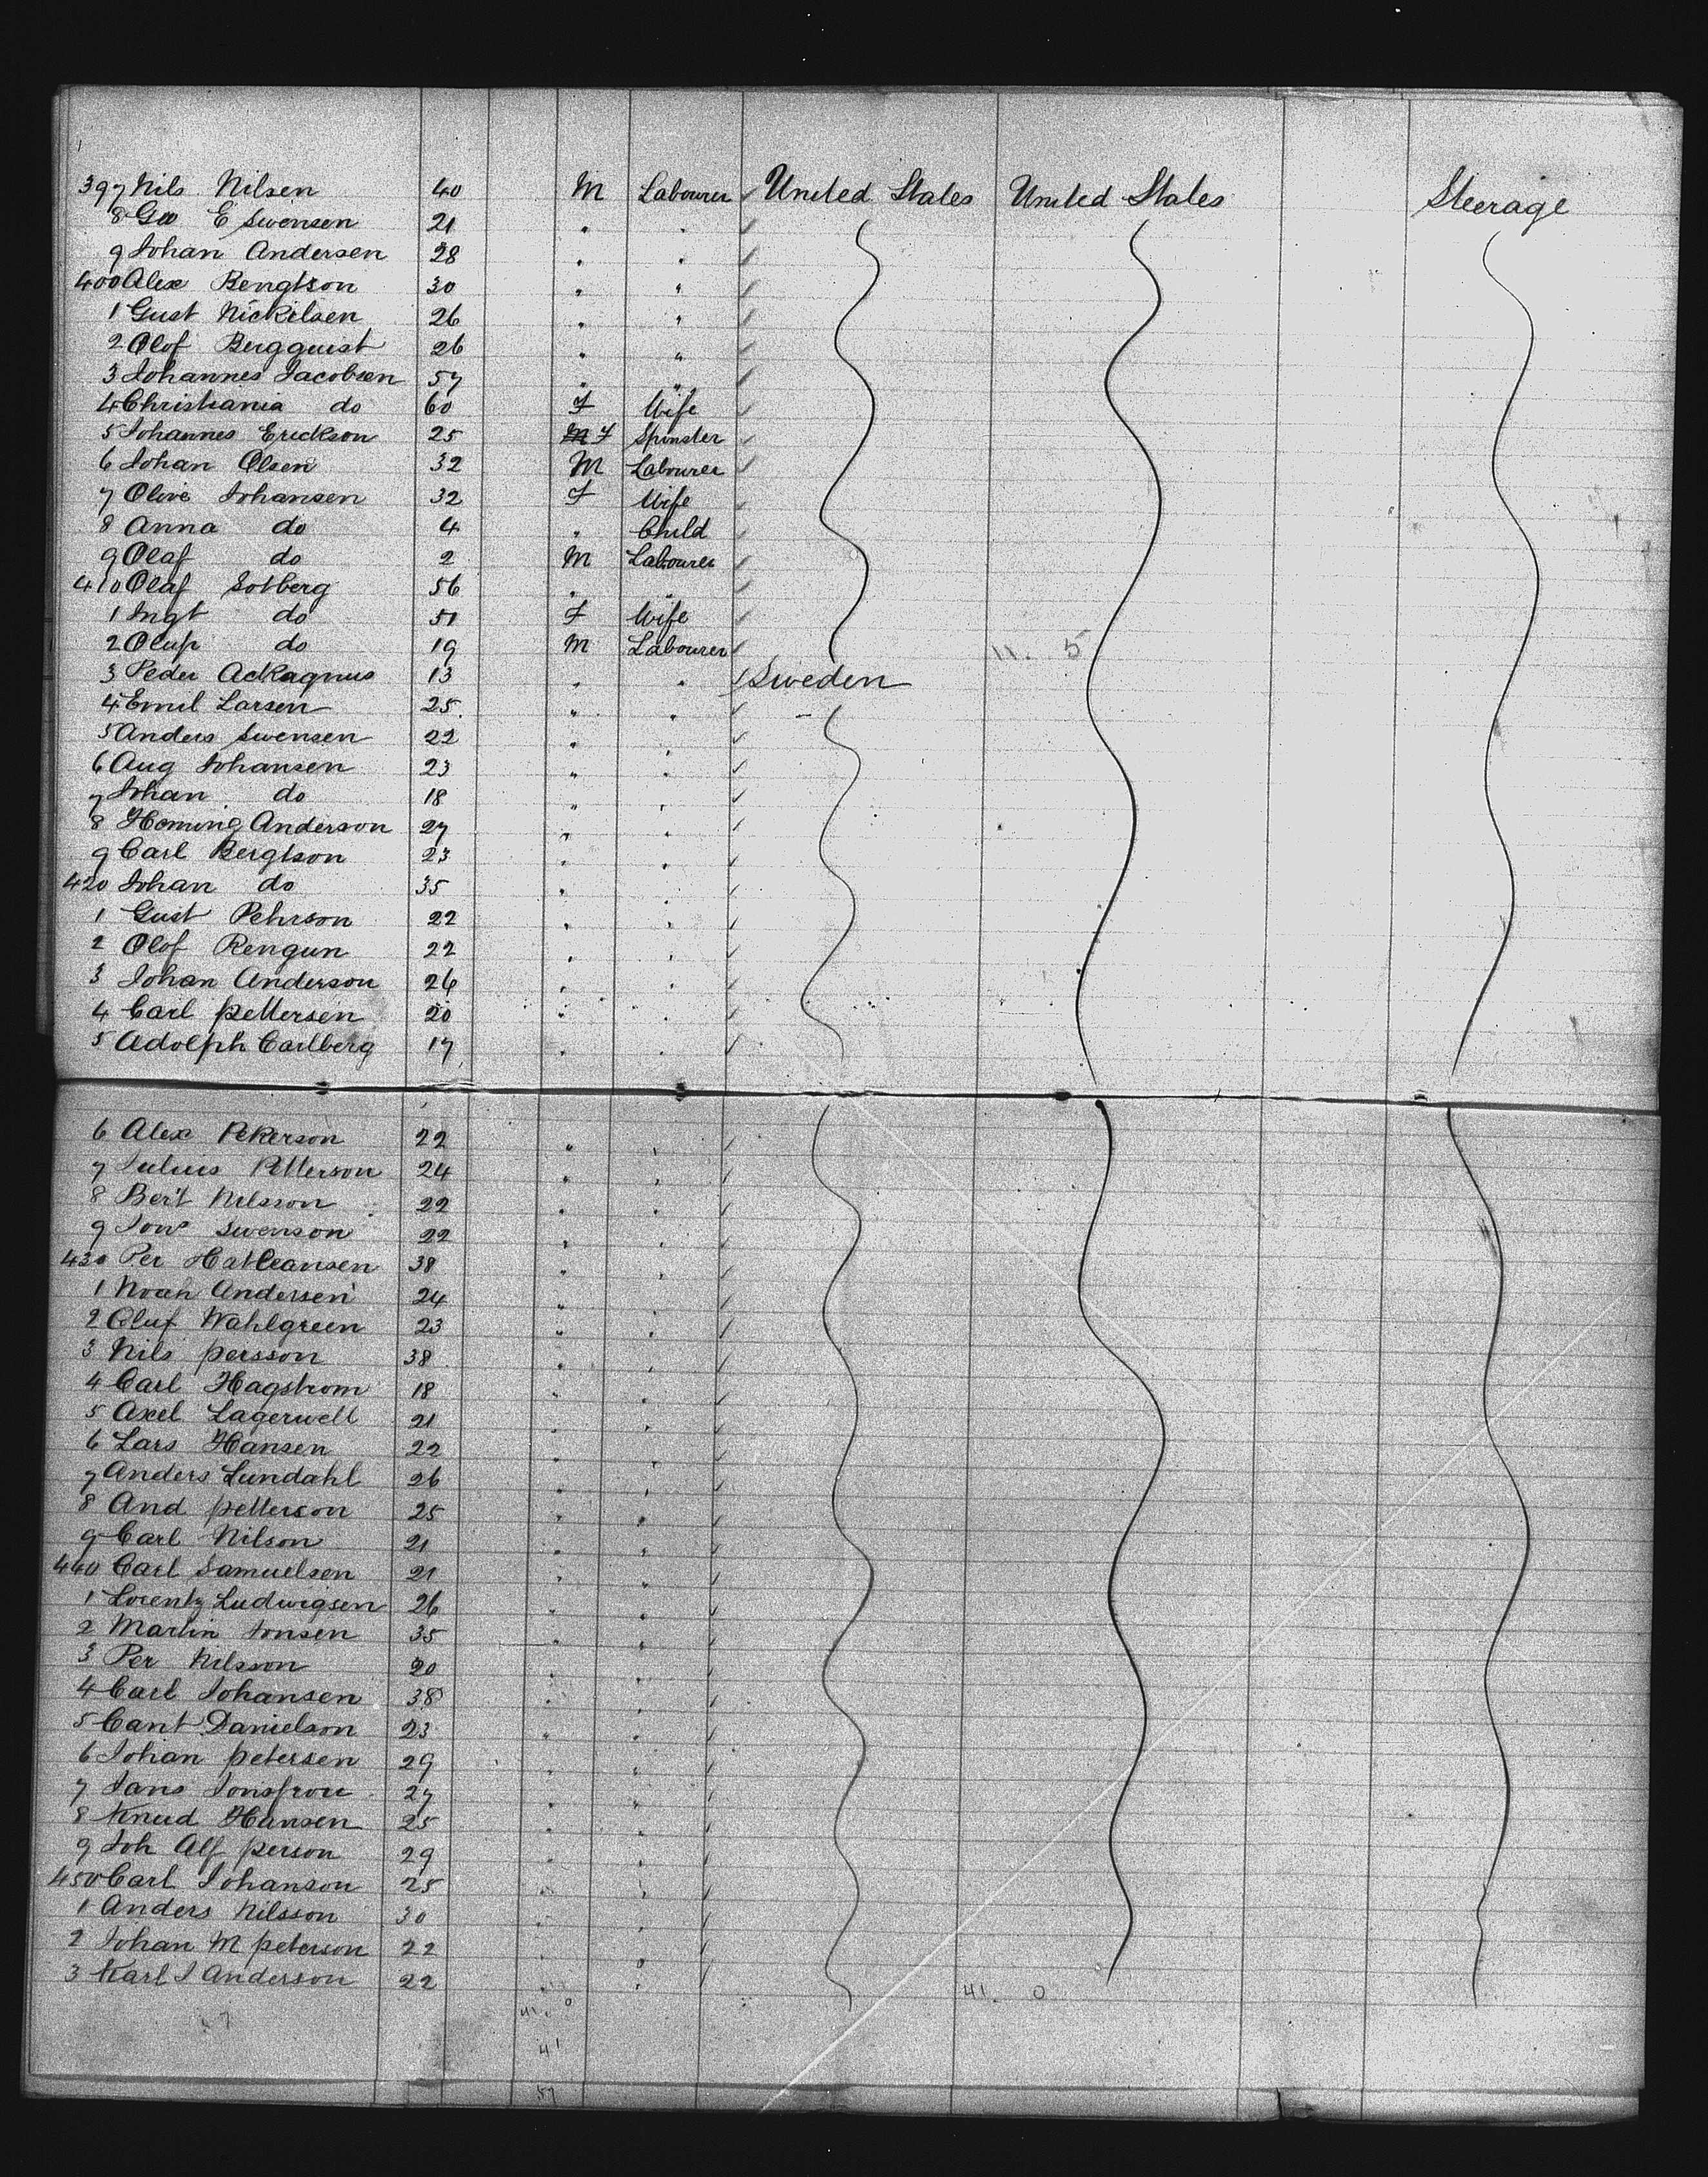 397 Nils Nilsen 40 M Labourer United States United States Steerage
8 Geo E Swensen 21 " "
9 Johan Andersen 28 " "
400 Alex Bengtson 30 " "
1 Gust Nickilsen 26 " "
2 Olof Bergquist 26 " "
3 Johannes Jacobsen 57 " "
4 Christiania do 60 F Wife
5 Johannes Erickson 25 M F Spinster
6 Johan Olsen 32 M Labourer
7 Olive Johansen 32 F Wife
8 Anna do 4 " Child
9 Olaf do 2 M Labourer
410 Olaf Solberg 56 " "
1 Ingt do 51 F Wife
2 Olup do 19 M Labourer 11. 5
3 Peder Ackagnus 13 " " Sweden
4 Emil Larsen 25 " "
5 Anders Swensen 22 " "
6 Aug Johansen 23 " "
7 Johan do 18 " "
8 Homing Anderson 27 " "
9 Carl Bergtson 23 " "
420 Johan do 35 " "
1 Gust Pehrson 22 " "
2 Olof Rengun 22 " "
3 Johan Anderson 26 " "
4 Carl Pettersen 20 " "
5 Adolph Carlberg 17 " "
6 Alex Pekerson 22 " "
7 Julius Petterson 24 " "
8 Bert Nilsson 22 " "
9 Swenson 22 " "
430 Per 38 " "
1 Noah Andersen 24 " "
2 Oluf Wahlgreen 23 " "
3 Nils persson 38 " "
4 Carl Hagstrom 18 " "
5 Axel Lagerwell 21 " "
6 Lars Hansen 22 " "
7 Anders Lundahl 26 " "
8 And petterson 25 " "
9 Carl Nilson 21 " "
440 Carl Samuelsen 21 " "
1 Lorentz Ludwigsen 26 " "
2 Martin Jonsen 35 " "
3 Per Nilsson 20 " "
4 Carl Johansen 38 " "
5 Cant Danielson 23 " "
6 Johan petersen 29 " "
7 Jans 27 " "
8 Knud Hansen 25 " "
9 Joh Alf person 29 " "
450 Carl Johanson 25 " "
1 Anders Nilsson 30 " "
2 Johan M peterson 22 " "
3 Karl J Anderson 22 " "
41. 0 41. 0
41
57